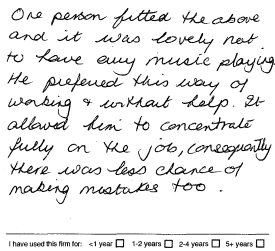 One person fitted the above
and it was lovely not
to have any music playing
He preferred this way of
working & without help. It
allowed him to concentrate
fully on the job, consequently
there was less chance of
making mistakes too.
I have used this firm for: <1 year ☐ 1-2 years ☐ 2-4 years ☐ 5+ years ☐